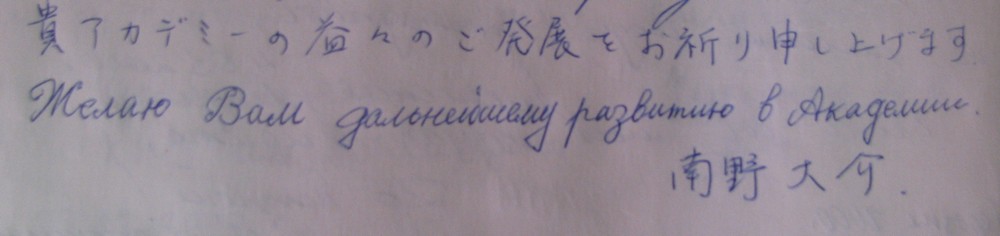 貴アカデミーの益々のご発展をお祈り申し上げます
Желаю Вам дальнейшему развитию в Академии.
南野大介.